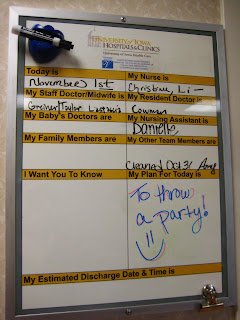 UNIVERSITY OF IOWA
HOSPITALS & CLINICS
University of Iowa Health Care
Today is
My Nurse is
November 1st
Christine, Li
My Staff Doctor/Midwife is
My Resident Doctor is
Bowman
My Baby's Doctors are
My Nursing Assistant is
Danielle
My Family Members are
My Other Team Members are
Cleaned Oct 31
I Want You To Know
My Plan For Today is
To throw
a party!
My Estimated Discharge Date & Time is